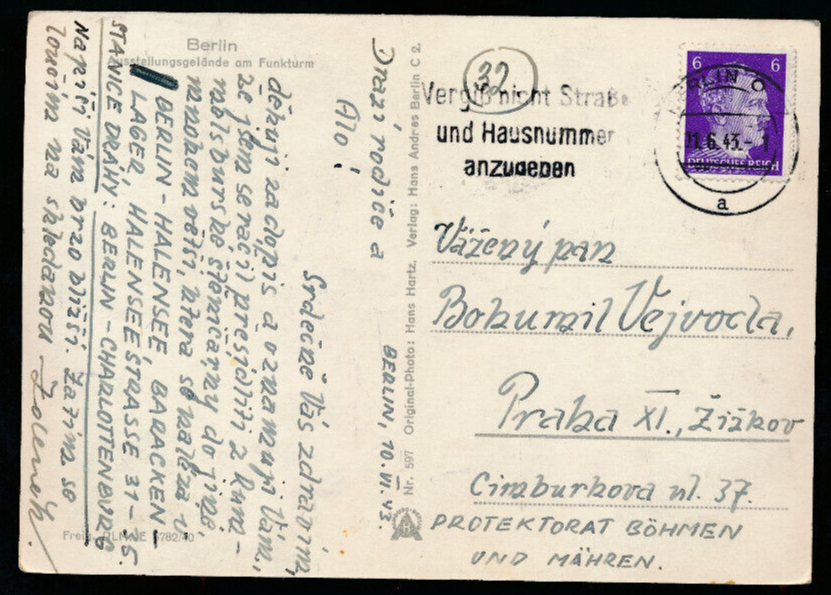 Berlin
Ausstellungsgelände am Funkturm
BERLIN, 10.VI.43.
Drazí rodiče a
Alo!
Srdečně Vás zdravím,
děkuji za dopis a oznamuji Vám,
že jsem se ráčil přestěhovati z Rum-
melsburské do jiné,
mnohem větší, která se nalézá v
BERLIN - HALENSEE BARACKEN -
LAGER, HALENSEESTRASSE 31-35.
STANICE DRAH: BERLIN-CHARLOTTENBURG
Napíši Vám brzo bližší. Zatím se
loučím na shledanou
Zdeněk.
Freig. RLM. 5782/40
Nr. 597 Original-Photo: Hans Hartz, Verlag: Hans Andres Berlin C 2.
32
Vergiß nicht Straße
und Hausnummer
anzugeben
6 6
DEUTSCHES REICH
BERLIN C
11.6.43.-1
a
Vážený pan
Bohumil Vejvoda,
Praha XI., Žižkov
Cimburkova ul. 37.
PROTEKTORAT BÖHMEN
UND MÄHREN.